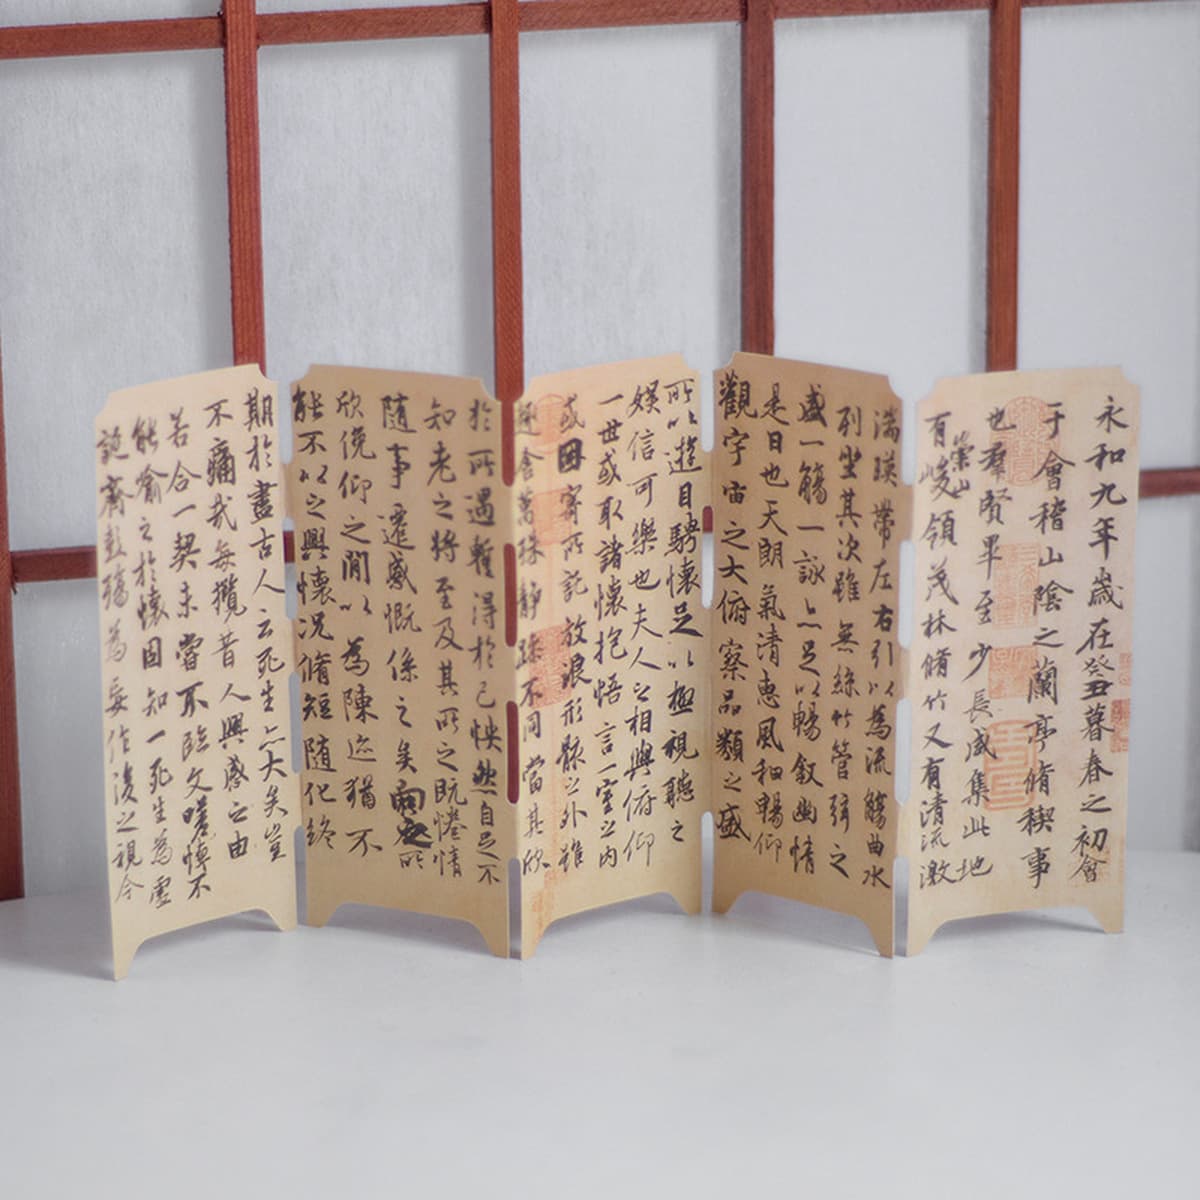 永和九年歲在癸丑暮春之初會
于會稽山陰之蘭亭脩稧事
也羣賢畢至少長咸集此地
有崇山峻領茂林脩竹又有清流激
湍暎帶左右引以為流觴曲水
列坐其次雖無絲竹管弦之
盛一觴一詠亦足以暢叙幽情
是日也天朗氣清惠風和暢仰
觀宇宙之大俯察品類之盛
所以遊目騁懷足以極視聽之
娛信可樂也夫人之相與俯仰
一世或取諸懷抱悟言一室之內
或因寄所託放浪形骸之外雖
趣舍萬殊靜躁不同當其欣
於所遇蹔得於己怏然自足不
知老之將至及其所之既惓情
隨事遷感慨係之矣向之所
欣俛仰之閒以為陳迹猶不
能不以之興懷况脩短隨化終
期於盡古人云死生亦大矣豈
不痛哉每攬昔人興感之由
若合一契未嘗不臨文嗟悼不
能喻之於懷固知一死生為虛
誕齊彭殤為妄作後之視今